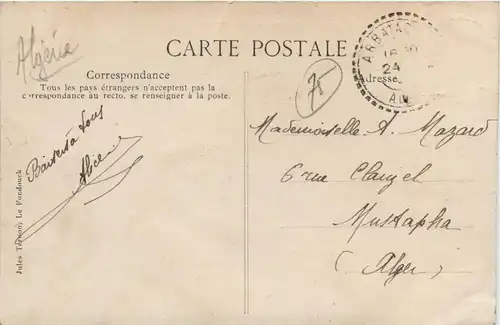 Algérie
CARTE POSTALE
Correspondance
Tous les pays étrangers n'acceptent pas la
correspondance au recto, se renseigner à la poste.
Adresse
75
ARBATA
16
24
Baisers à tous
Alice
Mademoiselle A. Mazard
6 rue Clauzel
Mustapha
(Alger)
Jules Le Fondouck